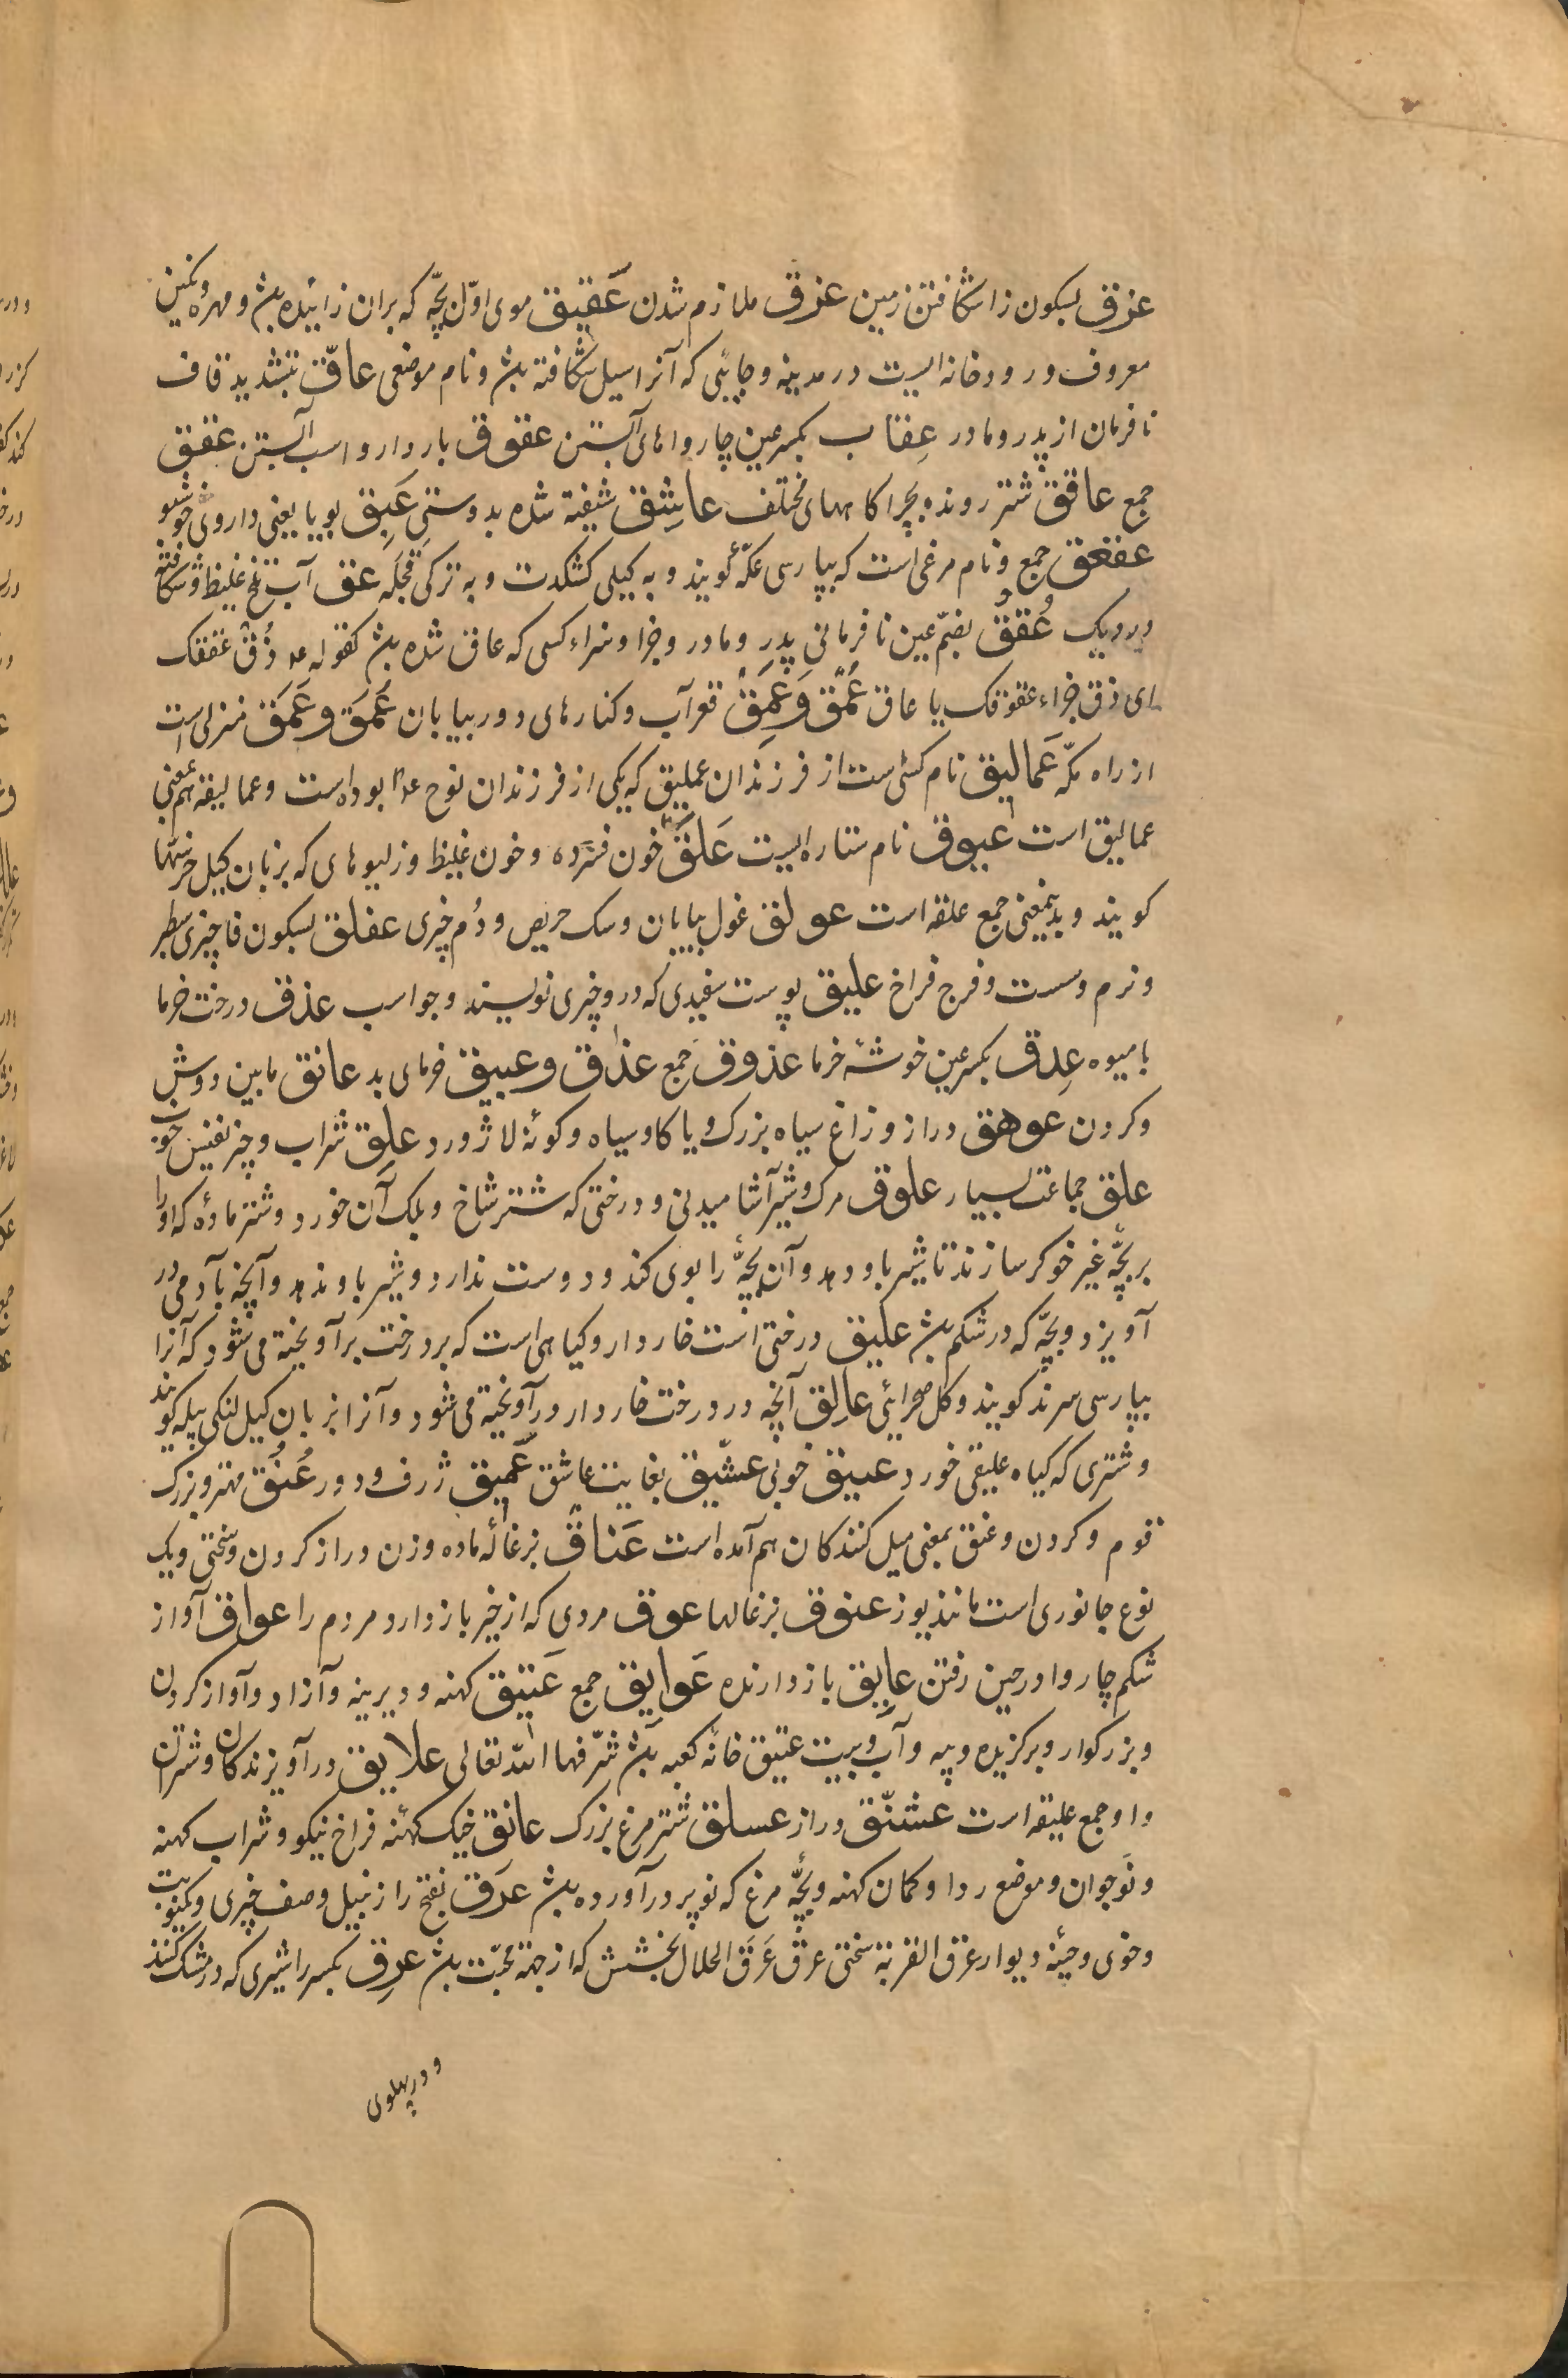 عزق بسکون زا شکافتن زمین عزق ملازم شدن عَقیق موی اوّل بچّه که بران زائیده بش و مهره و نکین
معروف و رودخانه ایست در مدینه و جائی که آنرا سیل شکافته بش و نام موضعی عاقّ بتشدید قاف
نافرمان از پدر و مادر عِقاب بکسر عین چارواهای آبستن عقوق باردار و اسب آبستن عقق
جمع عافق شتر رونده بچراکاههای مختلف عاشِق شیفته شده بدوستی عَبِق بویا یعنی داروی خوشبو
عقعق جمع و نام مرغی است که بپارسی عکّه کویند و به کیلی کشکرت و به ترکی قجله عق آب تلخ غلیظ و شکافته
و ردیک عُقُقْ بضمّ عین نافرمانی پدر و مادر و جزا و سزاء کسی که عاق شده بش کقوله عم ذُقْ عققک
ای ذق جزاء عقوقک یا عاق عُمْق وَ عَمِق قعر آب و کنارهای دور بیابان عُمَق و عَمَق منزلی است
از راه مکّه عَمالیق نام کسی است از فرزندان عملیق که یکی از فرزندان نوح عم بوده است و عمالیقه هم بمعنی
عمالیق است عیوق نام ستاره ایست عَلَق خون فسرده و خون غلیظ و زلیوهای که بزبان کیل خرسها
کویند و بدینمعنی جمع علقه است عولق غول بیابان و سک حریص و دُم چیزی عفلق بسکون فا چیزی سطبر
و نرم و سست و فرج فراخ علیق پوست سفیدی که درو چیزی نویسند و جو اسب عذق درخت خرما
با میوه عِذق بکسر عین خوشهٔ خرما عذوق جمع عذاق و عبیق خرمای بد عاتق مابین دوش
و کردن عوهق دراز و زاغ سیاه بزرک و یا کاو سیاه و کونهٔ لاژورد علِق شراب و چیز نفیس خوب
علق جماعت بسیار علوق مرک و شیر آشامیدنی و درختی که شتر شاخ و بلک آن خورد و شتر مادهٔ که او را
بر بچّه غیر خوکر سازند تا شیر باو دهد و آن بچّه را بوی کند و دوست ندارد و شیر باو ندهد و آنچه بآدمی در
آویزد و بچّه که در شکم بش علیق درختی است خاردار و کیاهی است که بر درخت برآویخته می شود که آنرا
بپارسی سرند کویند و کل صحرائی عالِق آنچه در درخت خاردار درآویخته می شود و آنرا بزبان کیل لنکی پیله کویند
و شتری که کیاه علیقی خورد عبیق خونی عشّیق بغایت عاشق عَمیق ژرف و دور عُنُق مهتر و بزرک
قوم و کردن و عنق بمعنی میل کنندکان هم آمده است عَناق بزغالهٔ ماده و زن دراز کردن و سختی و یک
نوع جانوری است مانند یوز عنوق بزغالها عوق مردی که از خیر باز دارد مردم را عواق آواز
شکم چاروا در حین رفتن عایِق باز دارنده عَوایق جمع عَتیق کهنه و دیرینه و آزاد و آواز کردن
و بزرکوار و برکزیده و پیه و آب و بیت عتیق خانهٔ کعبه بش شرّفها الله تعالی علایق درآویزندکان و شتران
و او جمع علیقه است عشنّق دراز عسلق شتر مرغ بزرک عاتق خیک کهنه فراخ نیکو و شراب کهنه
و نوجوان و موضع ردا و کمان کهنه و بچّهٔ مرغ که نو پر درآورده بش عرَق بفتح را زنبیل و صف چیزی و یکنوبت
و خوی و چینهٔ دیوار عرق القربة سختی عرق عَرَق الخلال بخشش که از جهة محبّت بش عرِق بکسر را شیری که در مشک کنند
و در پهلوی